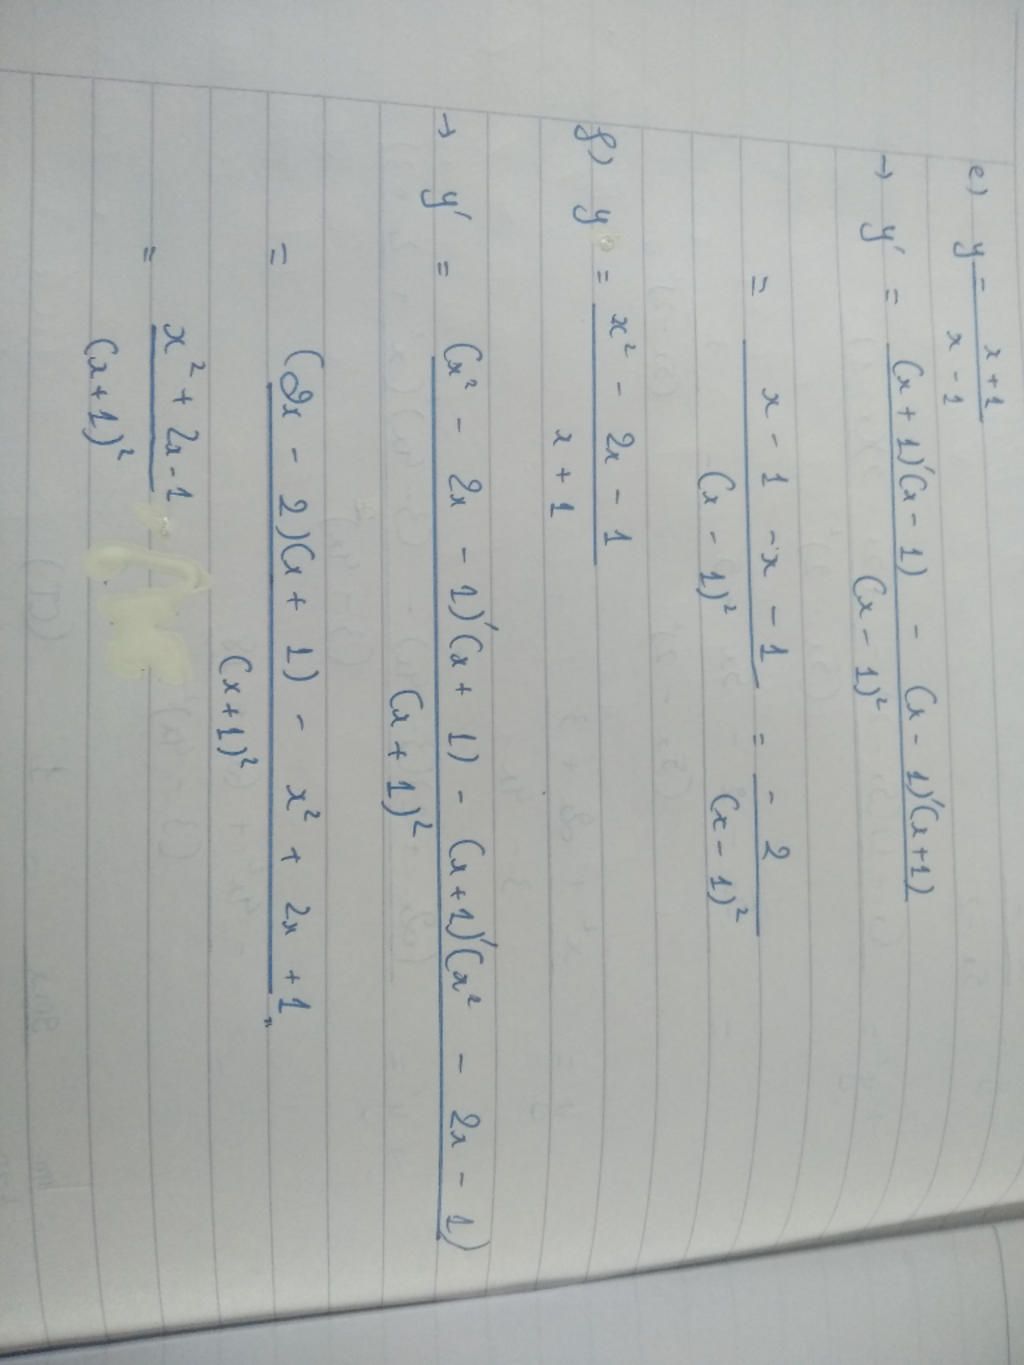 e) y = x + 1
x - 1
→ y' = (x + 1)'(x - 1) - (x - 1)'(x + 1)
(x - 1)²
= x - 1 - x - 1 = - 2
(x - 1)² (x - 1)²
f) y = x² - 2x - 1
x + 1
→ y' = (x² - 2x - 1)'(x + 1) - (x + 1)'(x² - 2x - 1)
(x + 1)²
= (2x - 2)(x + 1) - x² + 2x + 1
(x + 1)²
= x² + 2x - 1
(x + 1)²